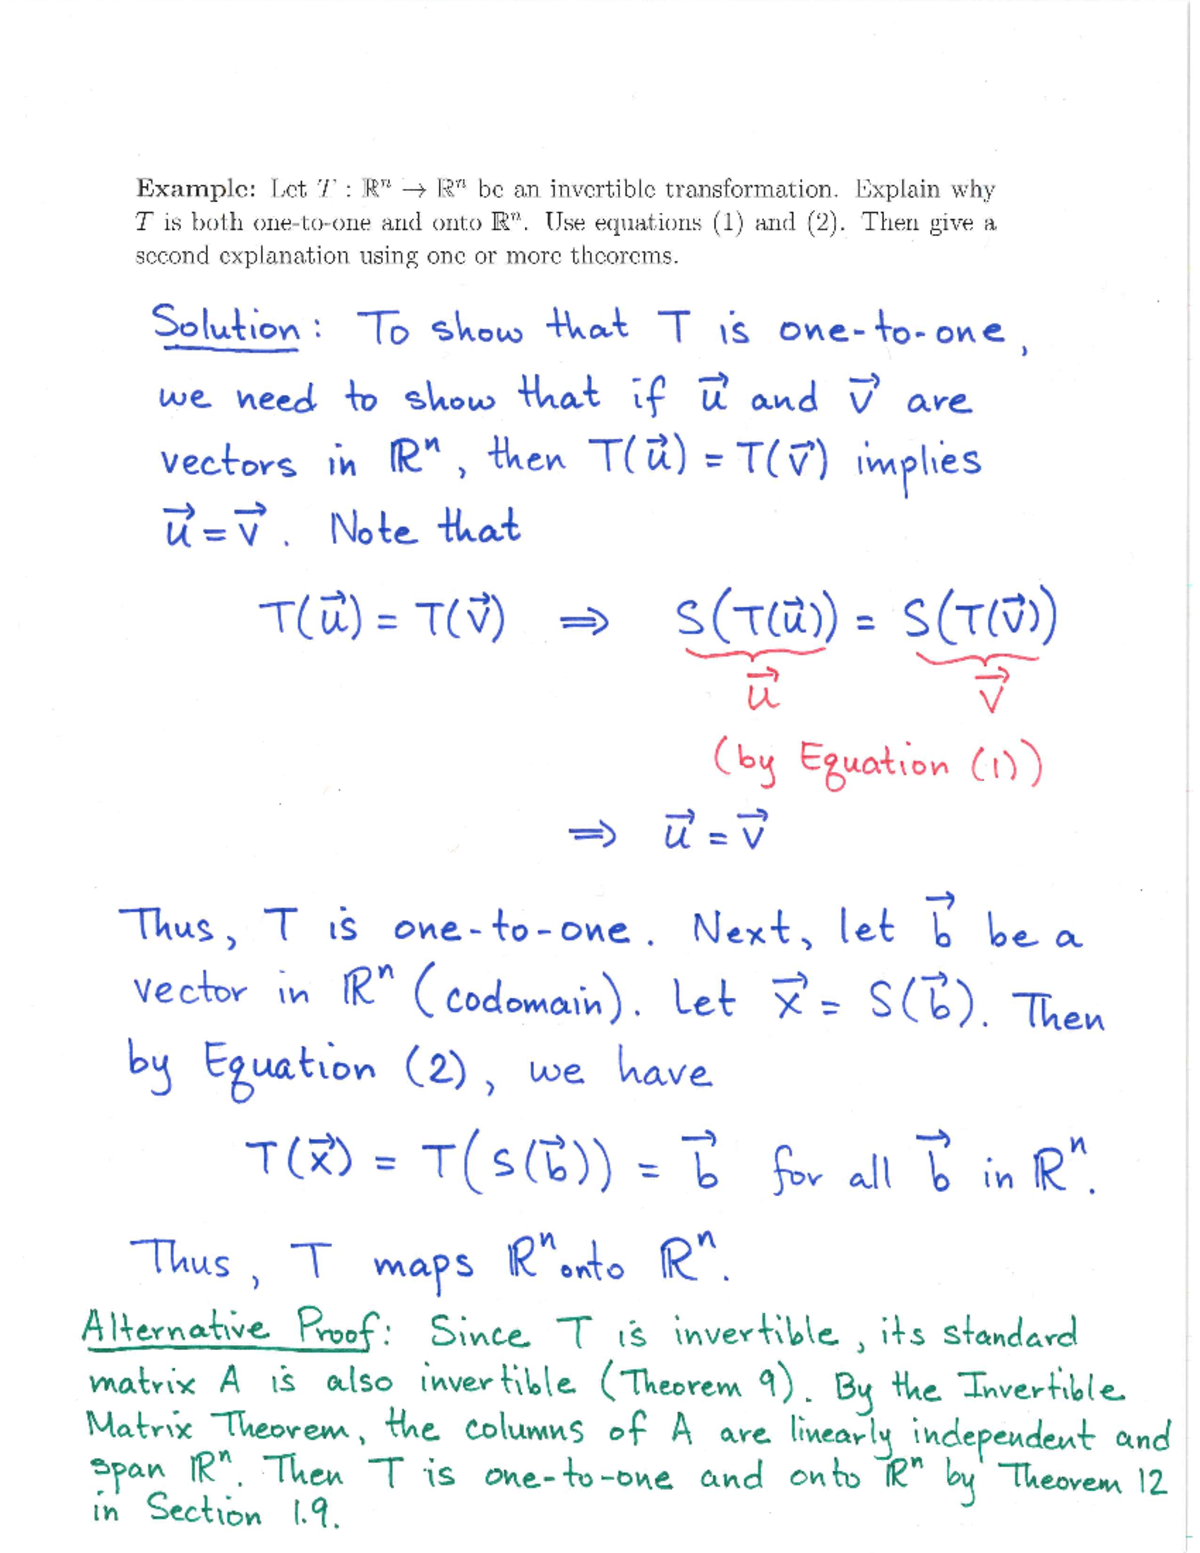 Example: Let T : ℝⁿ → ℝⁿ be an invertible transformation. Explain why
T is both one-to-one and onto ℝⁿ. Use equations (1) and (2). Then give a
second explanation using one or more theorems.
Solution: To show that T is one-to-one,
we need to show that if u⃗ and v⃗ are
vectors in ℝⁿ, then T(u⃗) = T(v⃗) implies
u⃗ = v⃗. Note that
T(u⃗) = T(v⃗) ⇒ S(T(u⃗)) = S(T(v⃗))
u⃗ v⃗
(by Equation (1))
⇒ u⃗ = v⃗
Thus, T is one-to-one. Next, let b⃗ be a
vector in ℝⁿ (codomain). Let x⃗ = S(b⃗). Then
by Equation (2), we have
T(x⃗) = T(S(b⃗)) = b⃗ for all b⃗ in ℝⁿ.
Thus, T maps ℝⁿ onto ℝⁿ.
Alternative Proof: Since T is invertible, its standard
matrix A is also invertible (Theorem 9). By the Invertible
Matrix Theorem, the columns of A are linearly independent and
span ℝⁿ. Then T is one-to-one and onto ℝⁿ by Theorem 12
in Section 1.9.